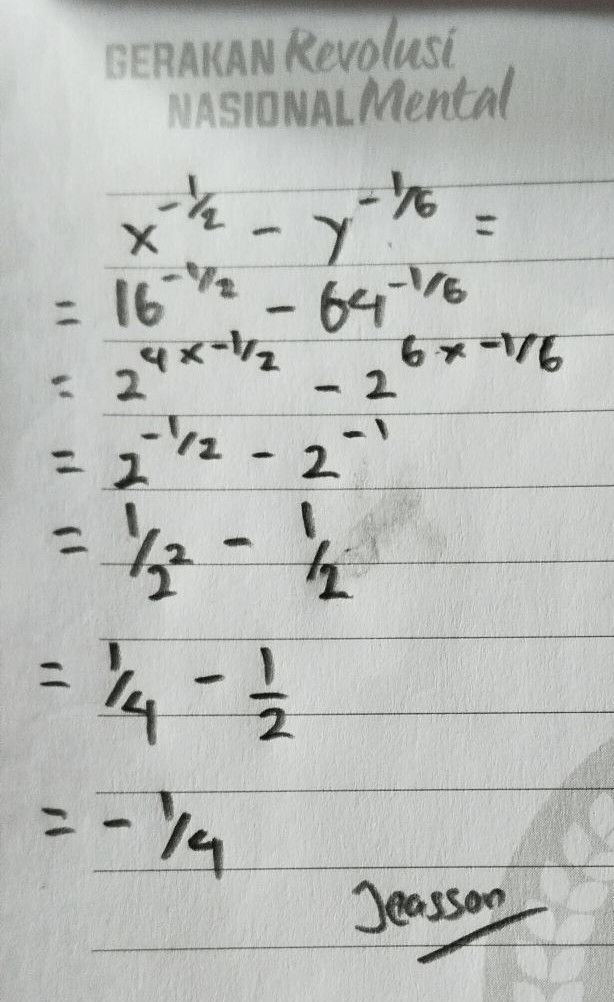 GERAKAN Revolusi
NASIONAL Mental
x^-1/2 - y^-1/6 =
= 16^-1/2 - 64^-1/6
= 2^4 x -1/2 - 2^6 x -1/6
= 2^-1/2 - 2^-1
= 1/2^2 - 1/2
= 1/4 - 1/2
= - 1/4
Jeasson